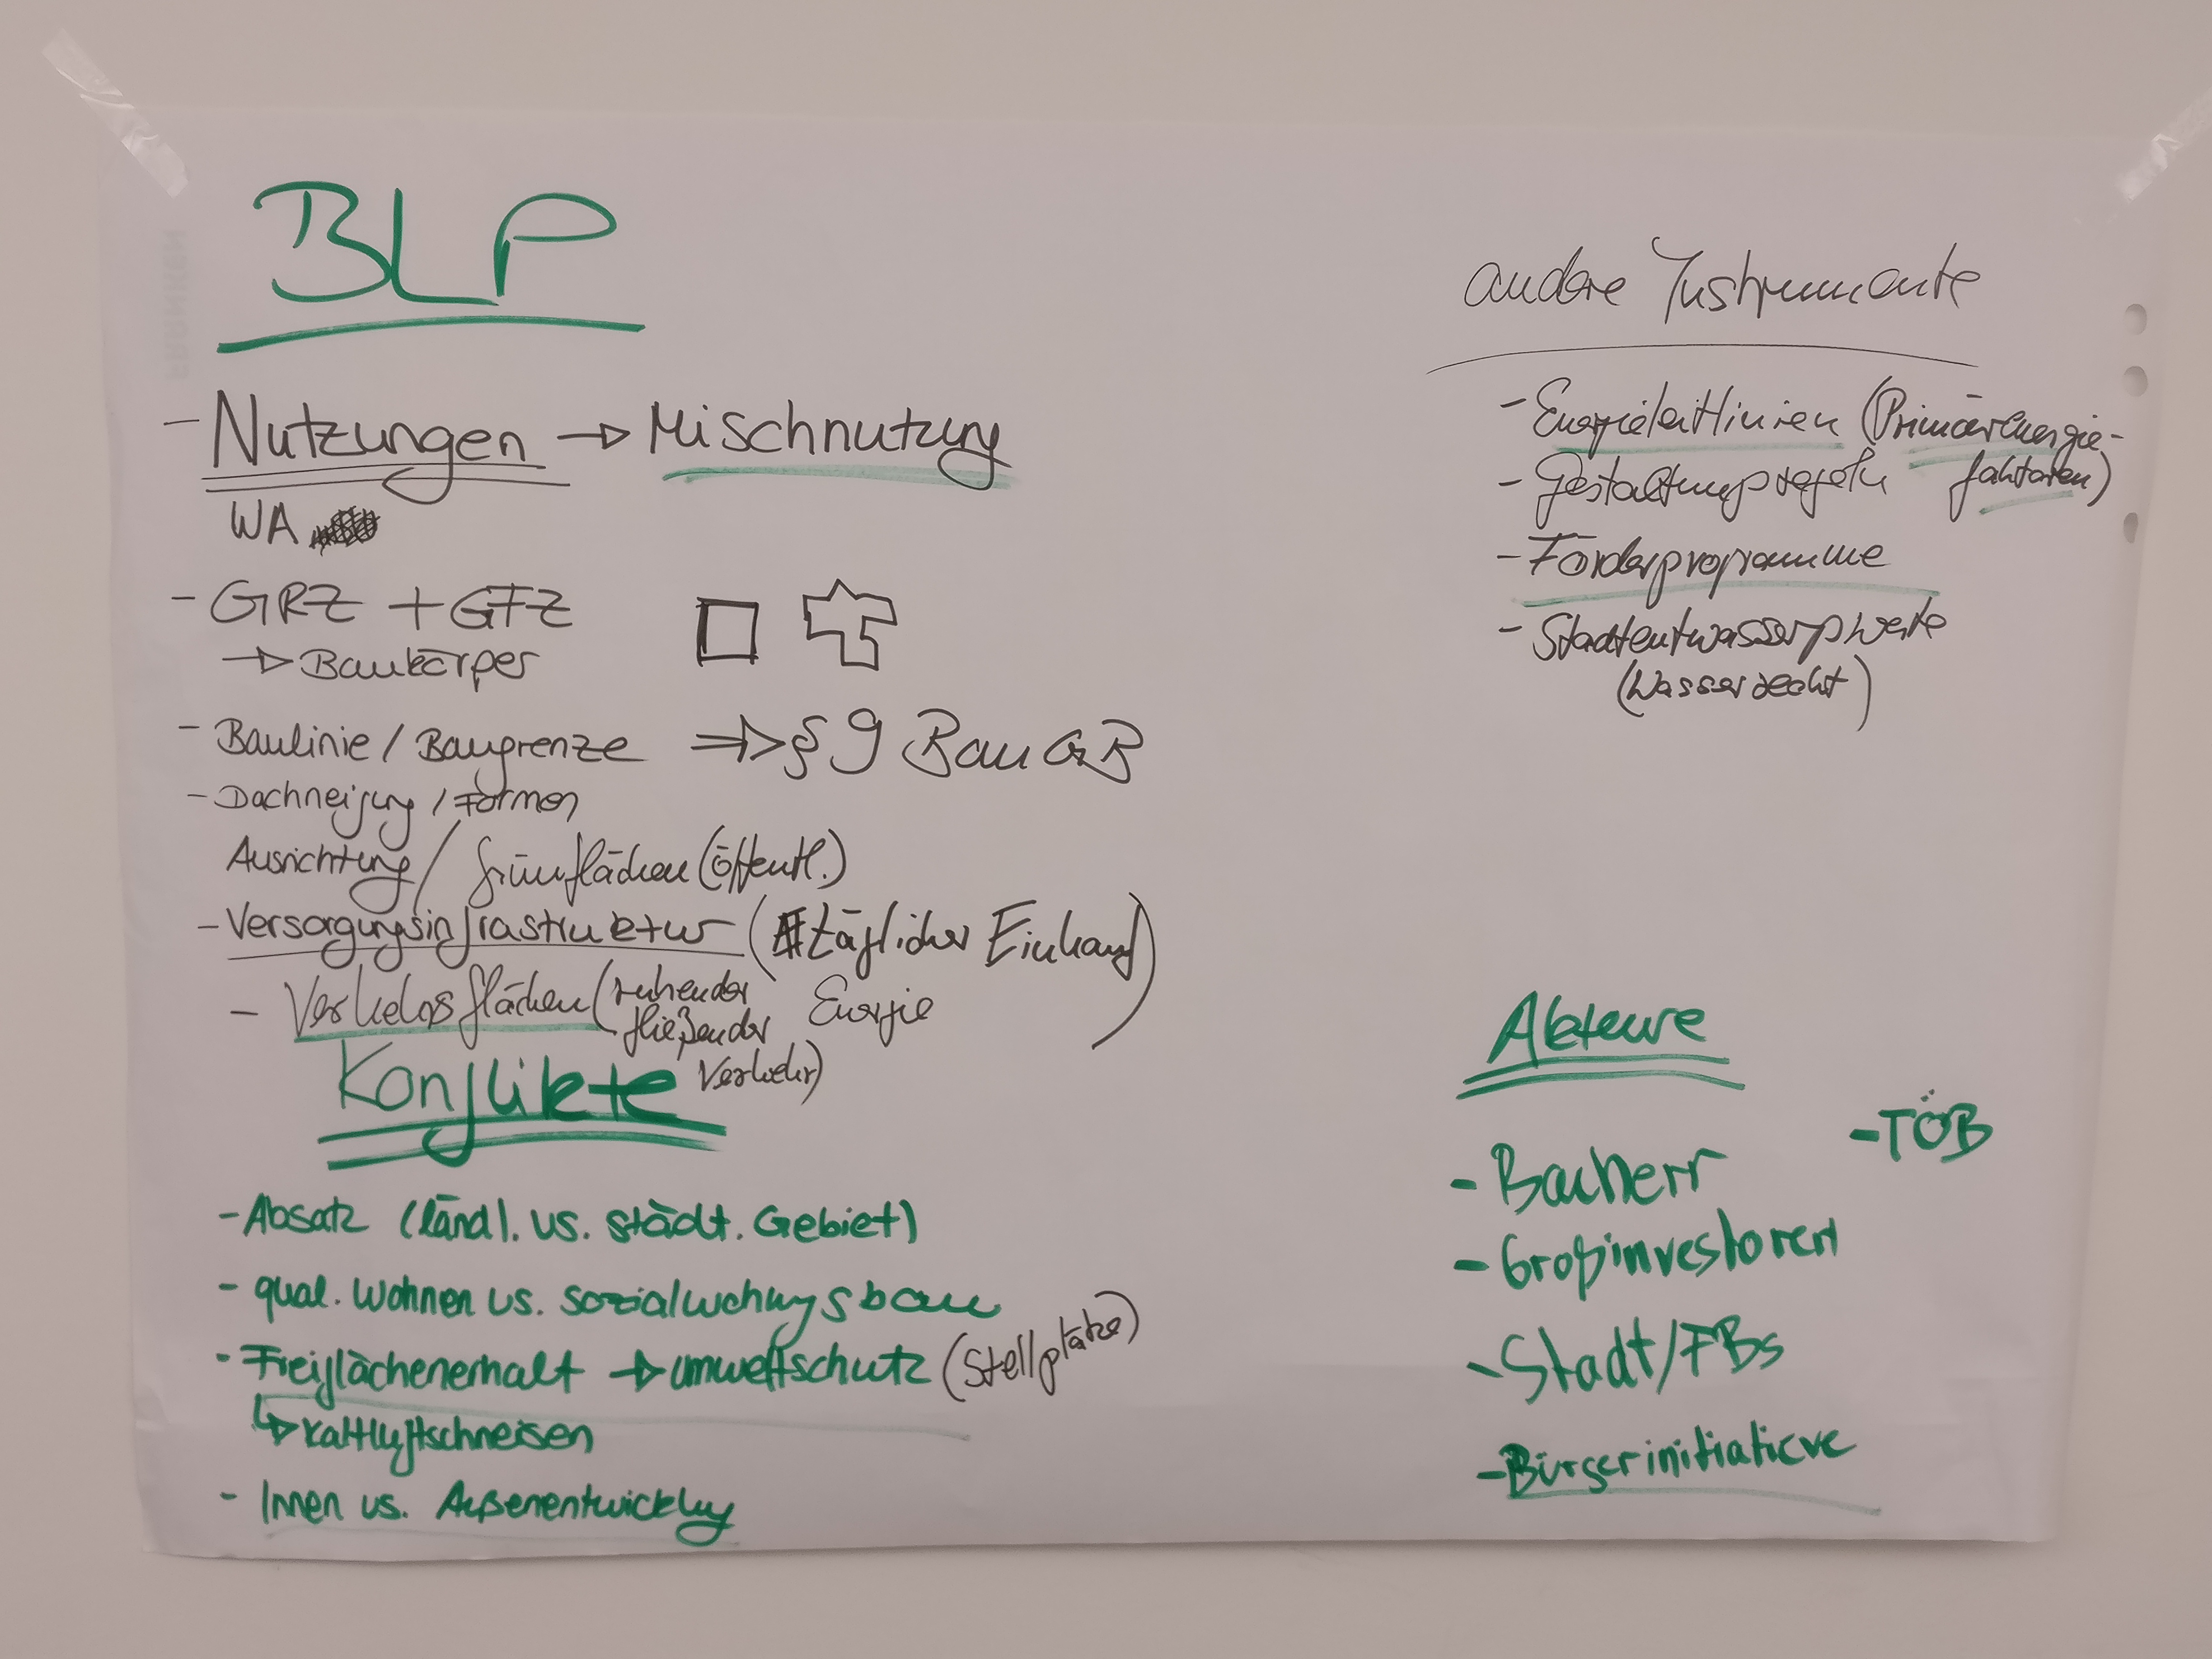 BLP
- Nutzungen → Mischnutzung
WA
- GRZ + GFZ
→ Baukörper
- Baulinie / Baugrenze ⇒ § 9 BauGB
- Dachneigung / Formen
Ausrichtung / Grünflächen (öffentl.)
- Versorgungsinfrastruktur (täglicher Einkauf
Energie)
- Verkehrsflächen (ruhender
fließender
Verkehr)
Konflikte
- Absatz (ländl. vs. städt. Gebiet)
- qual. Wohnen vs. sozialwohngsbau
- Freiflächenerhalt → umweltschutz (Stellplätze)
↳ Kaltluftschneisen
- Innen vs. Außenentwicklung
andere Instrumente
- Energieleitlinien (Primärenergie-
faktoren)
- Gestaltungsregeln
- Förderprogramme
- Stadtentwässerg
(Wasserrecht)
Akteure
- TÖB
- Bauherr
- Großinvestoren
- Stadt/FBs
- Bürgerinitiatieve
FRANKEN